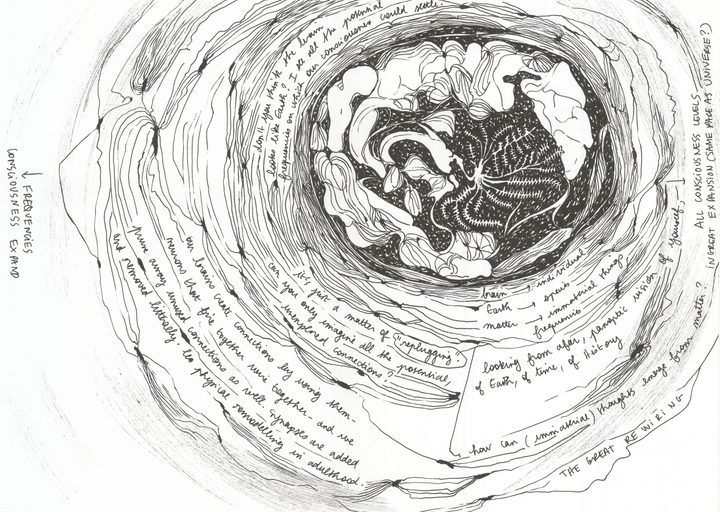 - don't you think the brain
looks like Earth? I see all the potential
frequencies on which our consciousness could settle.
ALL CONSCIOUSNESS LEVELS
IN GREAT EXPANSION (SAME PACE AS UNIVERSE?)
↓ FREQUENCIES
CONSCIOUSNESS EXPAND
it's just a matter of "replugging".
can you only imagine all the potential,
unexplored connections?
brain → individual
Earth → species
matter → immaterial things
frequencies
looking from afar, panoptic vision of yourself,
of Earth, of time, of History
our brains create connections by using them -
neurons that fire together wire together - and we
prune away unused connections as well. Synapses are added
and removed literally via physical remodelling in adulthood.
how can (immaterial) thoughts emerge from matter?
THE GREAT REWIRING